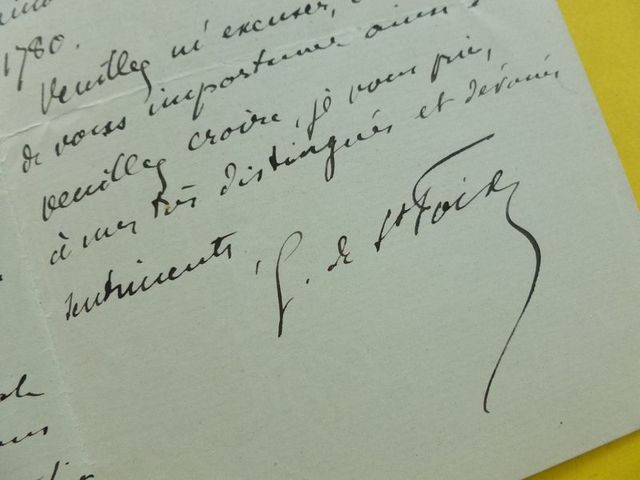 1780.
Veuillez m'excuser,
de vous importuner ainsi
veuillez croire, je vous prie,
à mes très distingués et dévoués
sentiments,
G. de St Foix